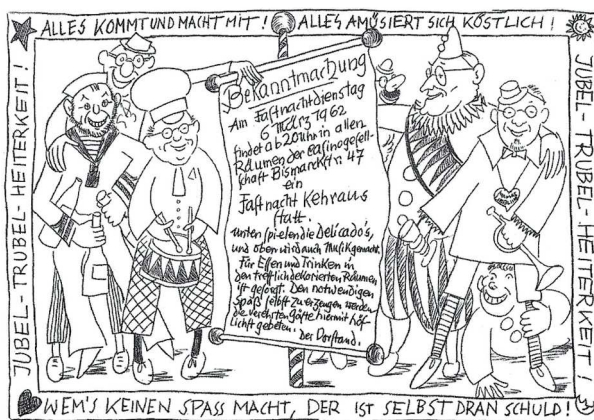 ALLES KOMMT UND MACHT MIT! ALLES AMÜSIERT SICH KÖSTLICH!
JUBEL-TRUBEL-HEITERKEIT!
Bekanntmachung
Am Fastnachtdienstag
6. März 1962
findet ab 20 Uhr in allen
Räumen der Casinogesell-
schaft Bismarckstr. 47
ein
Fastnacht Kehraus
statt.
unten spielen die Delicado's,
und oben wird auch Musik gemacht.
Für Essen und Trinken in
den trefflich dekorierten Räumen
ist gesorgt. Den notwendigen
Spaß selbst zu erzeugen werden
die verehrten Gäste hiermit höf-
lichst gebeten. Der Vorstand.
JUBEL-TRUBEL-HEITERKEIT!
WEM'S KEINEN SPASS MACHT, DER IST SELBST DRAN SCHULD!